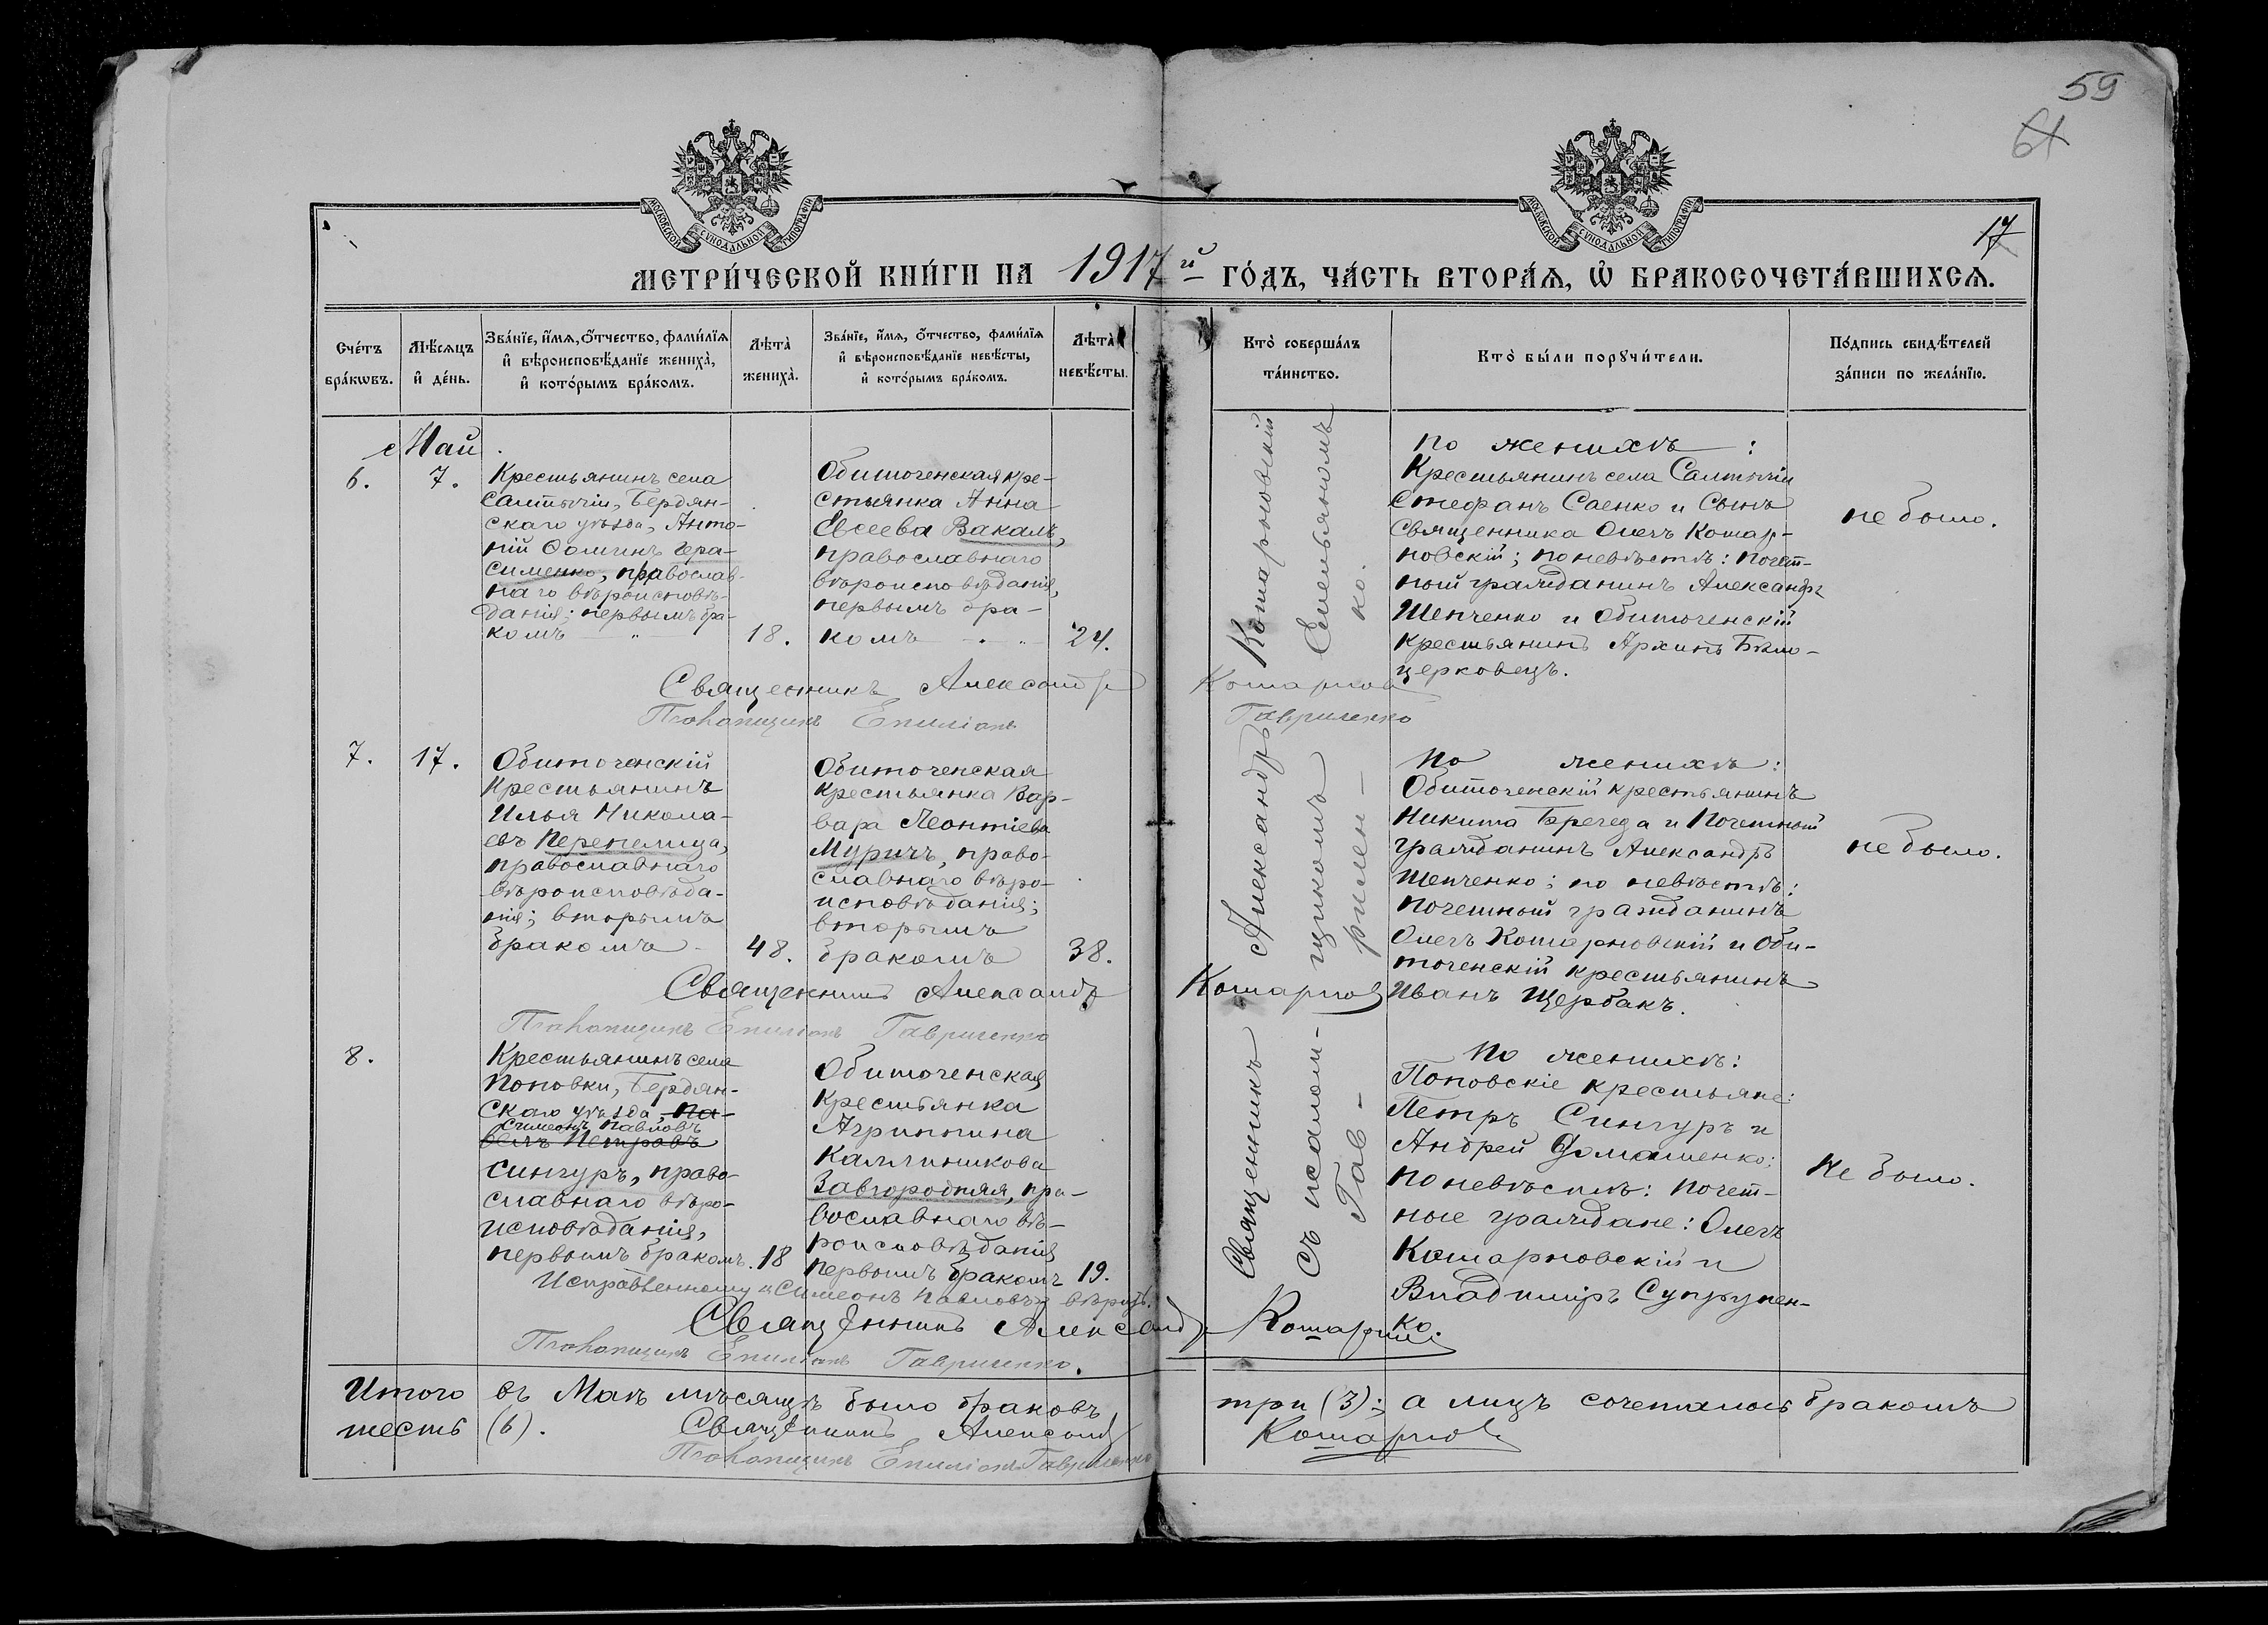 59
61
17
МОСКОВСКОЙ СУНОДАЛЬНОЙ ТИПОГРАФІИ
МОСКОВСКОЙ СУНОДАЛЬНОЙ ТИПОГРАФІИ
МЕТРИ́ЧЕСКОЙ КНИ́ГИ НА 1917 й ГО́ДЪ, ЧА́СТЬ ВТОРА́Я, Ѡ БРАКОСОЧЕТА́ВШИХСЯ.
Сче́тъ
бра́кѡвъ.
Мѣ́сяцъ
и҆ де́нь.
Зва́нїе, и҆́мя, ѻ҆́тчество, фами́лїя
и҆ вѣроисповѣ́данїе жениха̀,
и҆ кото́рымъ бра́комъ.
Лѣта̀
жениха̀.
Зва́нїе, и҆́мя, ѻ҆́тчество, фами́лїя
и҆ вѣроисповѣ́данїе невѣ́сты,
и҆ кото́рымъ бра́комъ.
Лѣта̀
невѣ́сты.
Кто̀ соверша́лъ
та́инство.
Кто̀ бы́ли порꙋчи́тели.
По́дпись свидѣ́телей
за́писи по жела́нїю.
Май.
6.
7.
Крестьянинъ села
Салтычіи, Бердян-
скаго уѣзда, Анто-
ній Ѳоминъ Гера-
сименко, православ-
наго вѣроисповѣ-
данія; первымъ бра-
комъ — " —
18.
Обиточенская кре-
стьянка Анна
Евсеева Вакаль,
православнаго
вѣроисповѣданія,
первымъ бра-
комъ
24.
Кошарновскій
Емельяномъ
ко.
по женихѣ:
Крестьянинъ села Салтычіи
Стефанъ Саенко и Сынъ
Священника Олегъ Кошар-
новскій; по невѣстѣ: почет-
ный гражданинъ Александръ
Шепченко и Обиточенскій
крестьянинъ Архипъ Бѣло-
церковецъ.
не было.
Священникъ Александръ Кошарнов
Псаломщикъ Емиліанъ Гавриленко
7.
17.
Обиточенскій
крестьянинъ
Илья Никола-
евъ Перепелица,
православнаго
вѣроисповѣда-
нія; вторымъ
бракомъ
48.
Обиточенская
крестьянка Вар-
вара Леонтіева
Муричъ, право-
славнаго вѣро-
исповѣданія;
вторымъ
бракомъ
38.
Александръ
щикомъ
рилен-
По женихѣ:
Обиточенскій крестьянинъ
Никита Брегеда и Почетный
гражданинъ Александръ
Шепченко; по невѣстѣ:
почетный гражданинъ
Олегъ Кошарновскій и Оби-
точенскій крестьянинъ
Иванъ Щербакъ.
не было.
Священникъ Александръ Кошарнов
Псаломщикъ Емиліанъ Гавриленко
8.
Крестьянинъ села
Поповки, Бердян-
скаго уѣзда, Па-
Симеонъ Павловъ
велъ Петровъ
Сингуръ, право-
славнаго вѣро-
исповѣданія,
первымъ бракомъ.
18
Обиточенская
крестьянка
Агриппина
Каллиникова
Завгородняя, пра-
вославнаго вѣ-
роисповѣданія
первымъ бракомъ
19.
Священникъ
съ псалом-
Гав-
По женихѣ:
Поповскіе крестьяне:
Петръ Сингуръ и
Андрей Домашенко;
по невѣстѣ: почет-
ные граждане: Олегъ
Кошарновскій и
Владиміръ Супрунен-
ко.
Не было.
Исправленному "Симеонъ Павловъ" вѣрить.
Священникъ Александръ Кошарнов
Псаломщикъ Емиліанъ Гавриленко.
Итого въ Маѣ мѣсяцѣ было браковъ три (3); а лицъ сочеталось бракомъ
шесть (6). Священникъ Александръ Кошарнов
Псаломщикъ Емиліанъ Гавриленко